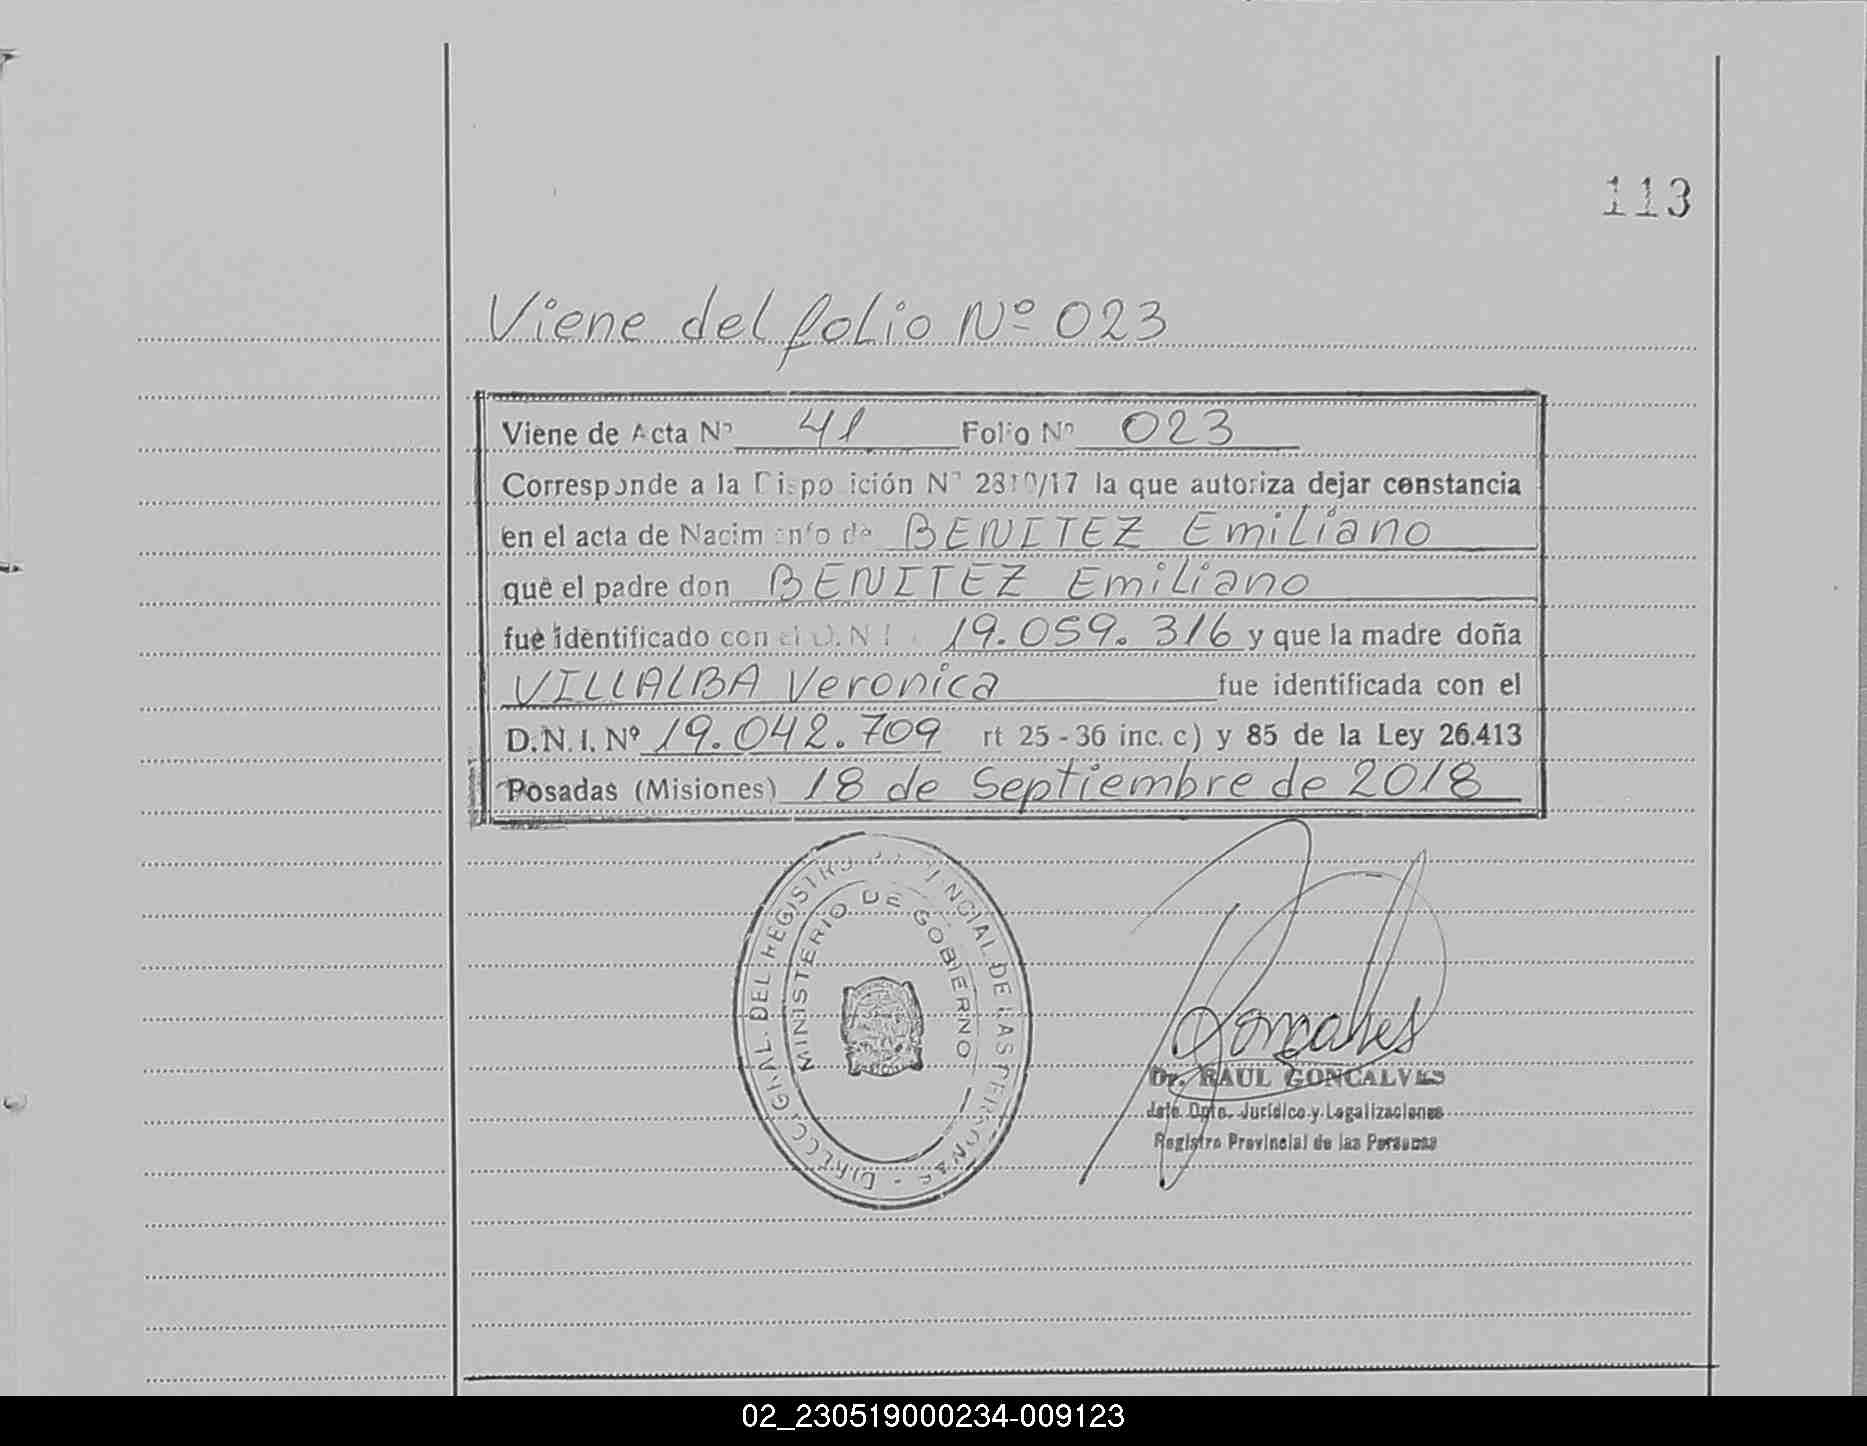 113
Viene del folio Nº 023
Viene de Acta Nº 41 Folio Nº 023
Corresponde a la Disposición Nº 2810/17 la que autoriza dejar constancia
en el acta de Nacimiento de BENITEZ Emiliano
que el padre don BENITEZ Emiliano
fue identificado con el D.N.I. 19.059.316 y que la madre doña
VILLALBA Veronica fue identificada con el
D.N.I. Nº 19.042.709 rt 25-36 inc. c) y 85 de la Ley 26.413
Posadas (Misiones) 18 de Septiembre de 2018
DIRECC. GRAL. DEL REGISTRO PROVINCIAL DE LAS PERSONAS -
MINISTERIO DE GOBIERNO
Goncalves
Dr. RAUL GONCALVES
Jefe Dpto. Jurídico y Legalizaciones
Registro Provincial de las Personas
02_230519000234-009123